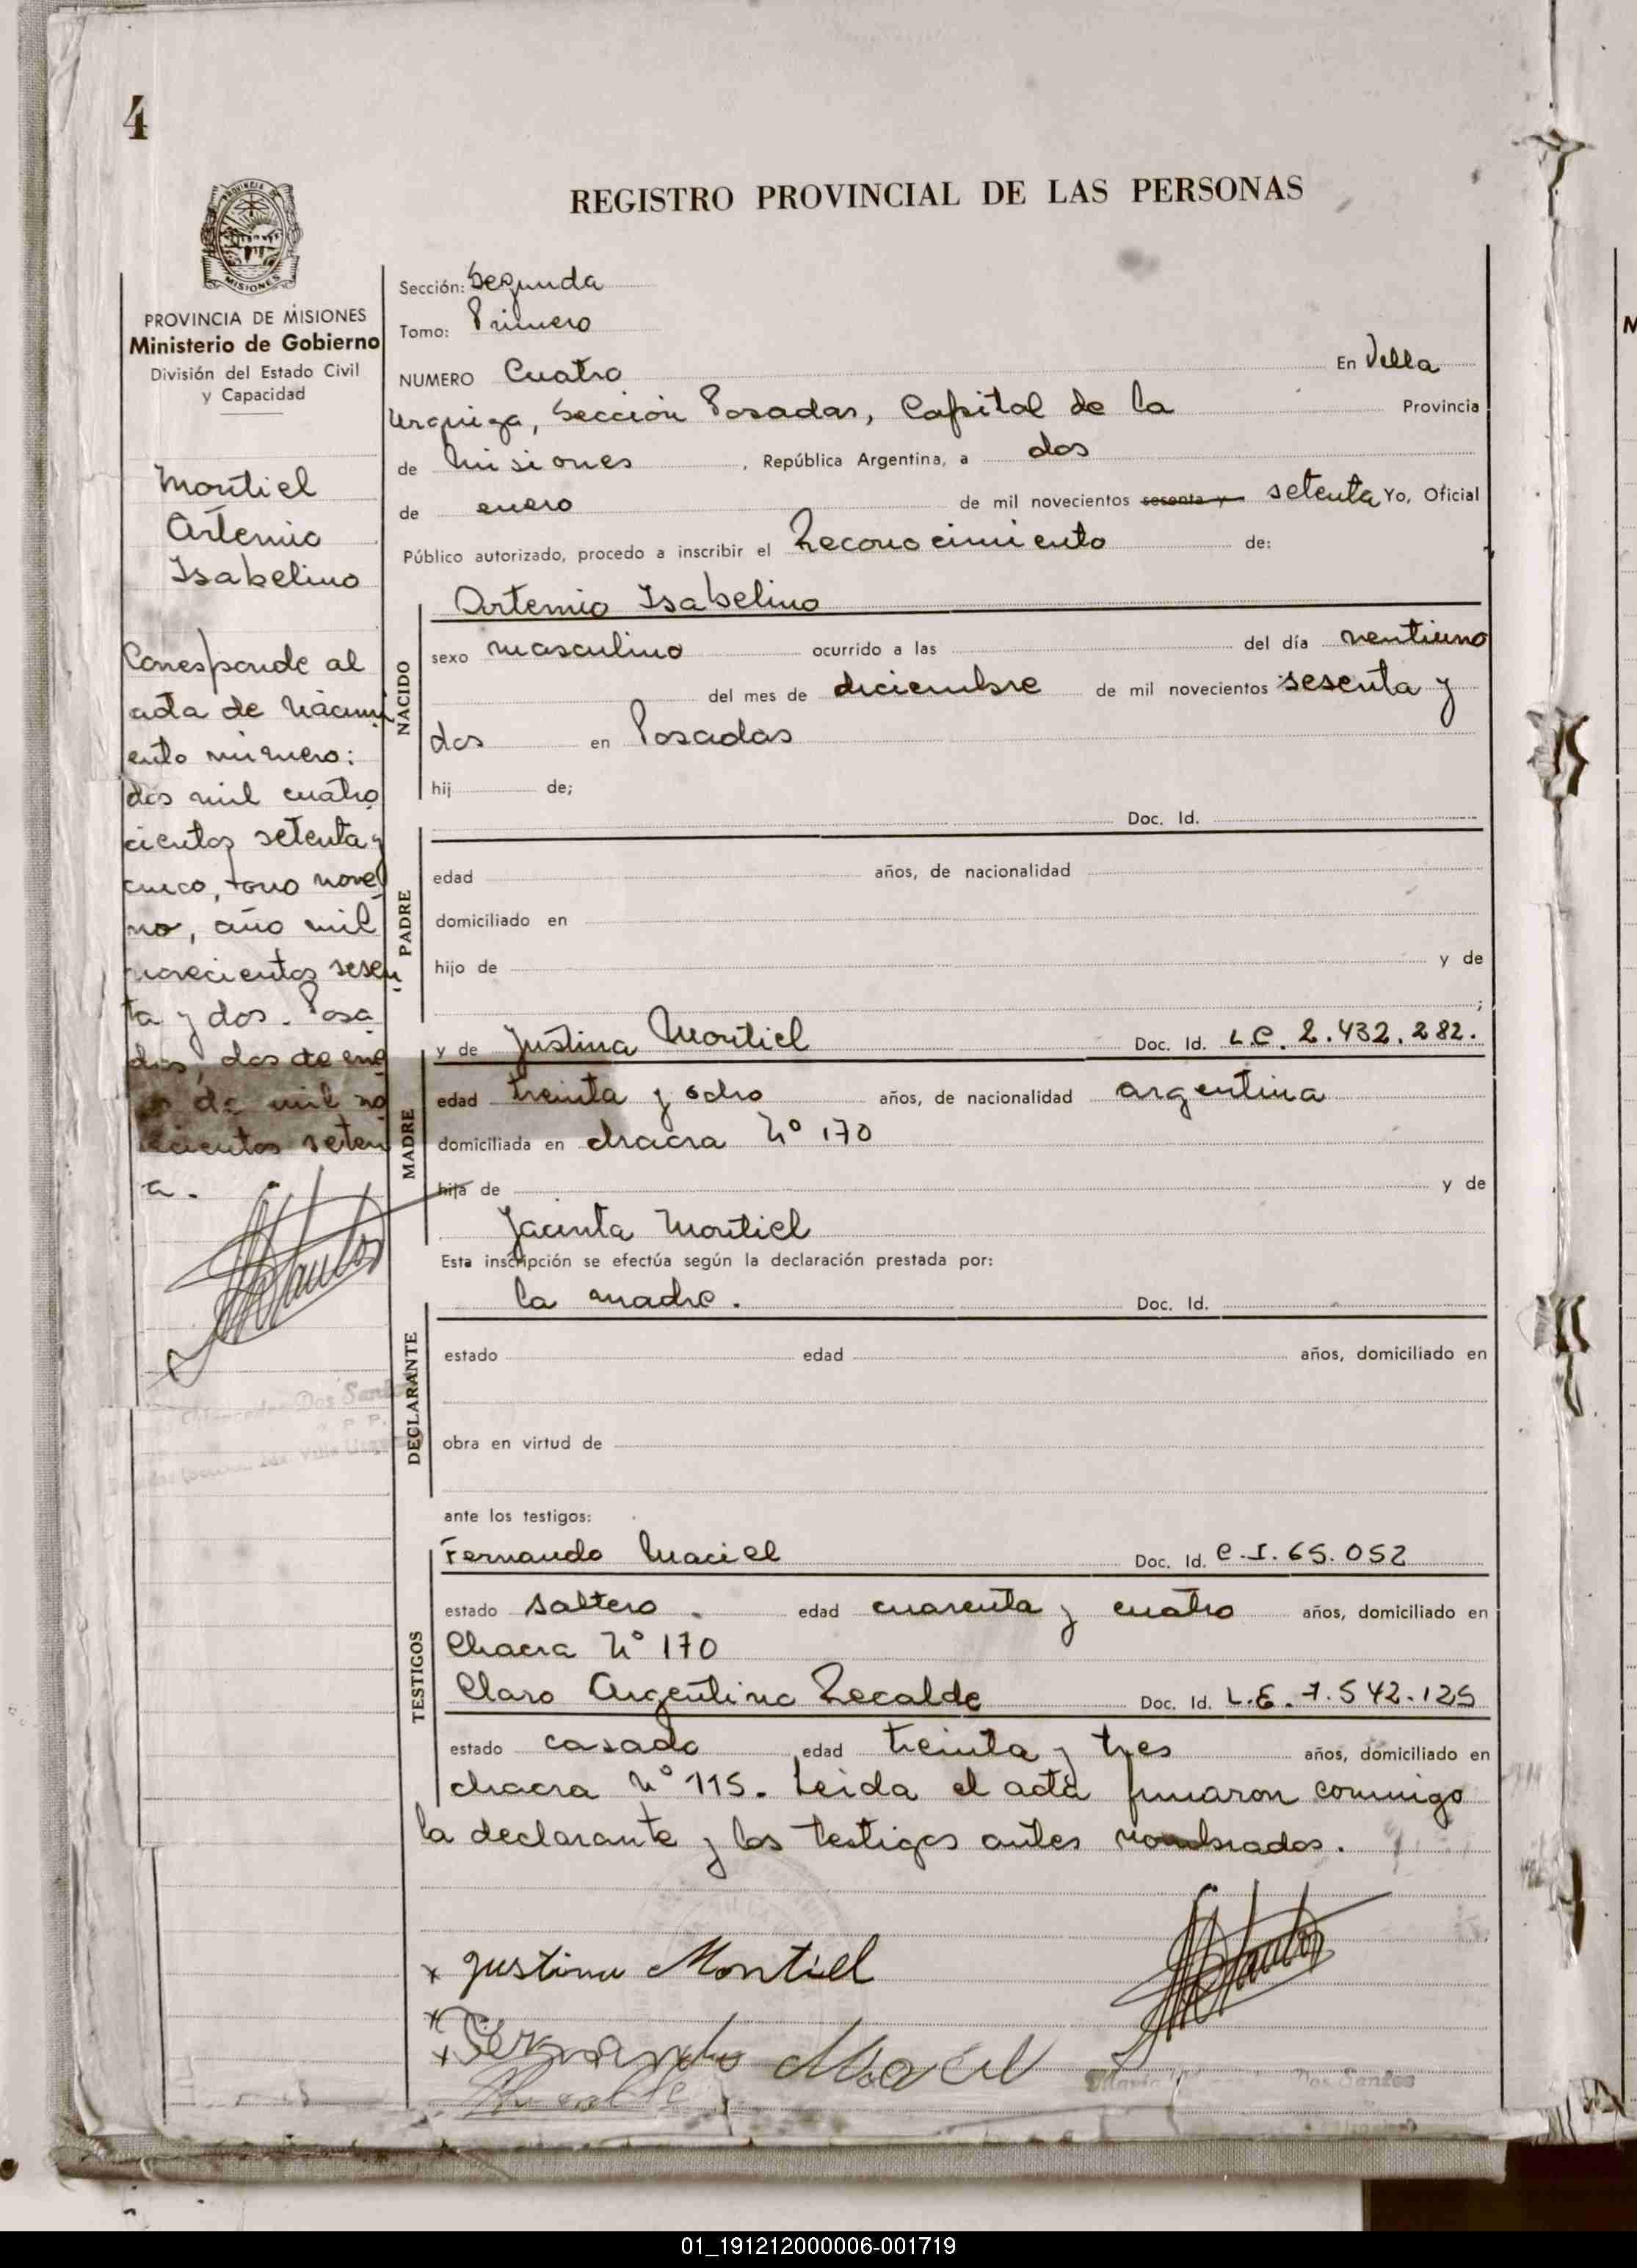 4
REGISTRO PROVINCIAL DE LAS PERSONAS
MISIONES
PROVINCIA DE MISIONES
Ministerio de Gobierno
División del Estado Civil
y Capacidad
Montiel
Artemio
Isabelino
Corresponde al
acta de nacimi
ento número:
dos mil cuatro
cientos setenta y
cinco, tomo nove
no, año mil
novecientos sesen
ta y dos. Posa
das, dos de ene
ro de mil no
vecientos seten
a.
Dos Santos
Sección: Segunda
Tomo: Primero
NUMERO Cuatro En Villa
Urquiza, Sección Posadas, Capital de la Provincia
de Misiones, República Argentina, a dos
de enero de mil novecientos sesenta y setenta Yo, Oficial
Público autorizado, procedo a inscribir el Reconocimiento de:
NACIDO
Artemio Isabelino
sexo masculino ocurrido a las del día ventiuno
del mes de diciembre de mil novecientos sesenta y
dos en Posadas
hij de;
PADRE
Doc. Id.
edad años, de nacionalidad
domiciliado en
hijo de y de
;
MADRE
y de Justina Montiel Doc. Id. L.C. 2.432.282.
edad treinta y ocho años, de nacionalidad argentina
domiciliada en chacra Nº 170
hija de y de
Jacinta Montiel
Esta inscripción se efectúa según la declaración prestada por:
DECLARANTE
la madre. Doc. Id.
estado edad años, domiciliado en
obra en virtud de
ante los testigos:
TESTIGOS
Fernando Maciel Doc. Id. C.I. 65.052
estado soltero. edad cuarenta y cuatro años, domiciliado en
Chacra Nº 170
Claro Argentino Recalde Doc. Id. L.E. 7.542.125
estado casado edad treinta y tres años, domiciliado en
chacra Nº 115. Leida el acta firmaron conmigo
la declarante y los testigos antes nombrados.
x Justina Montiel
x Fernando Maciel
x
Dos Santos
01_191212000006-001719